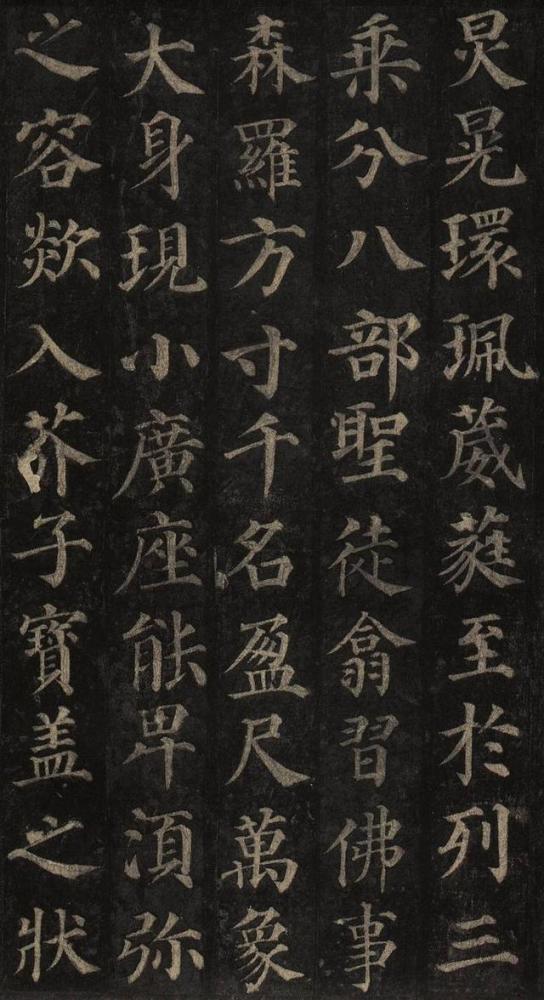 炅晃環珮葳蕤至於列三
乘分八部聖徒翕習佛事
森羅方寸千名盈尺萬象
大身現小廣座能卑須弥
之容欻入芥子寶盖之狀